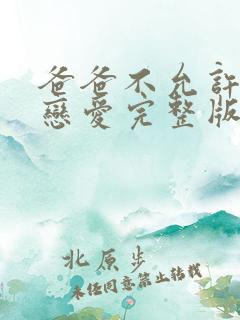 爸爸不允許
戀愛完整版
北原步
未經同意禁止轉載